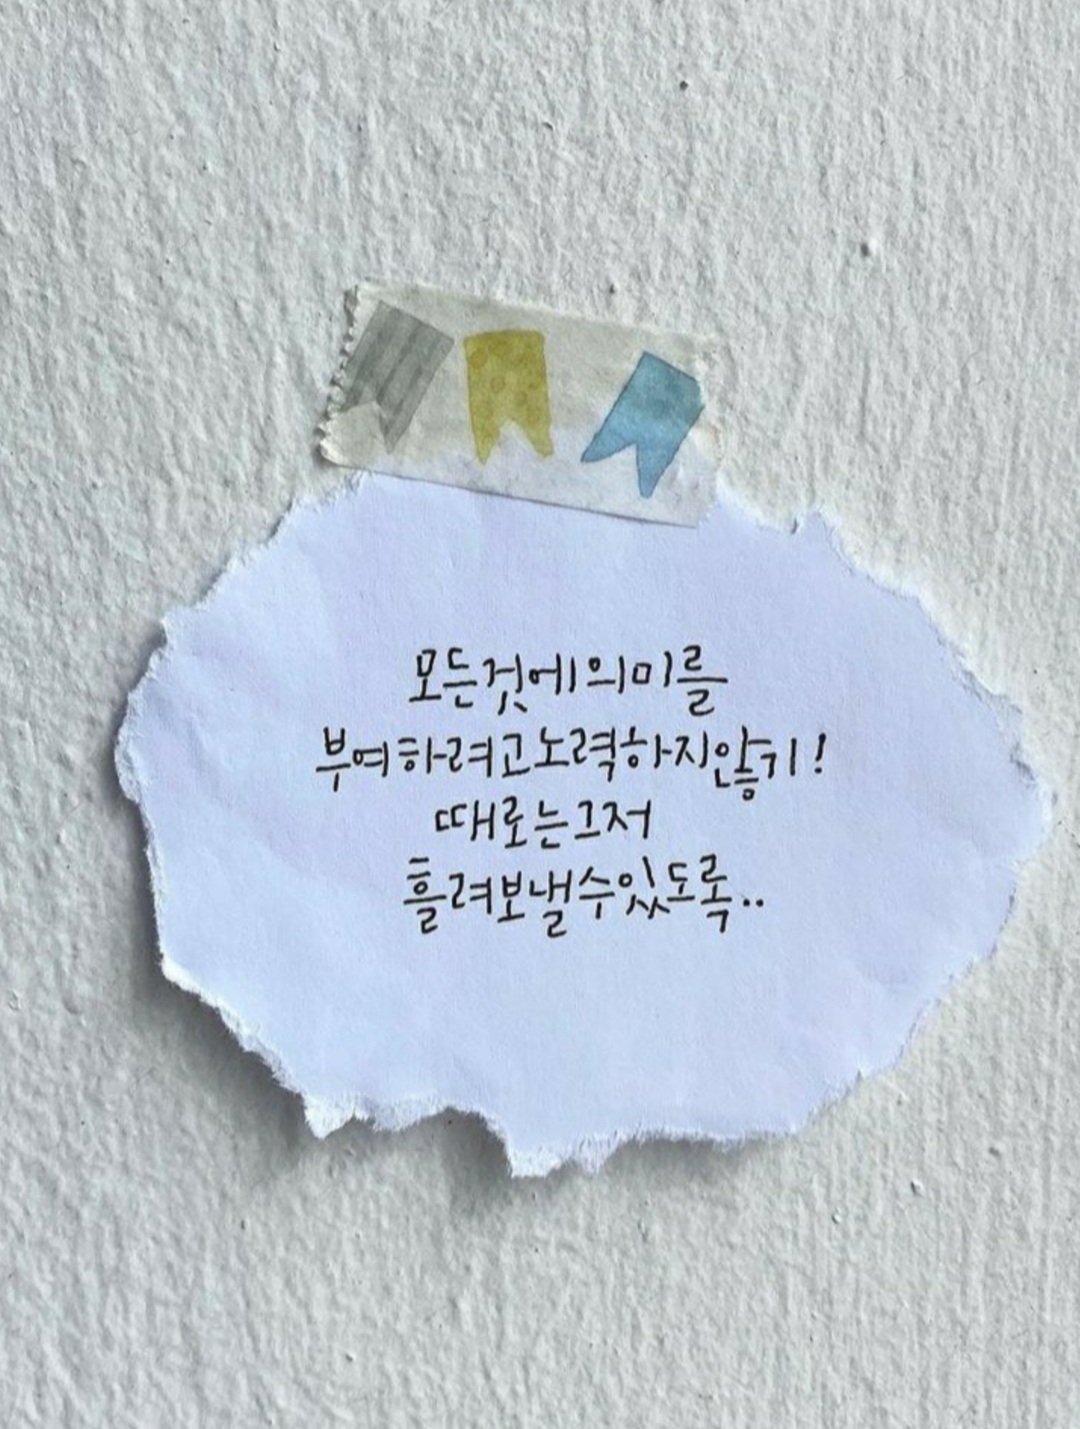 모든것에의미를
부여하려고노력하지않기!
때로는그저
흘려보낼수있도록..